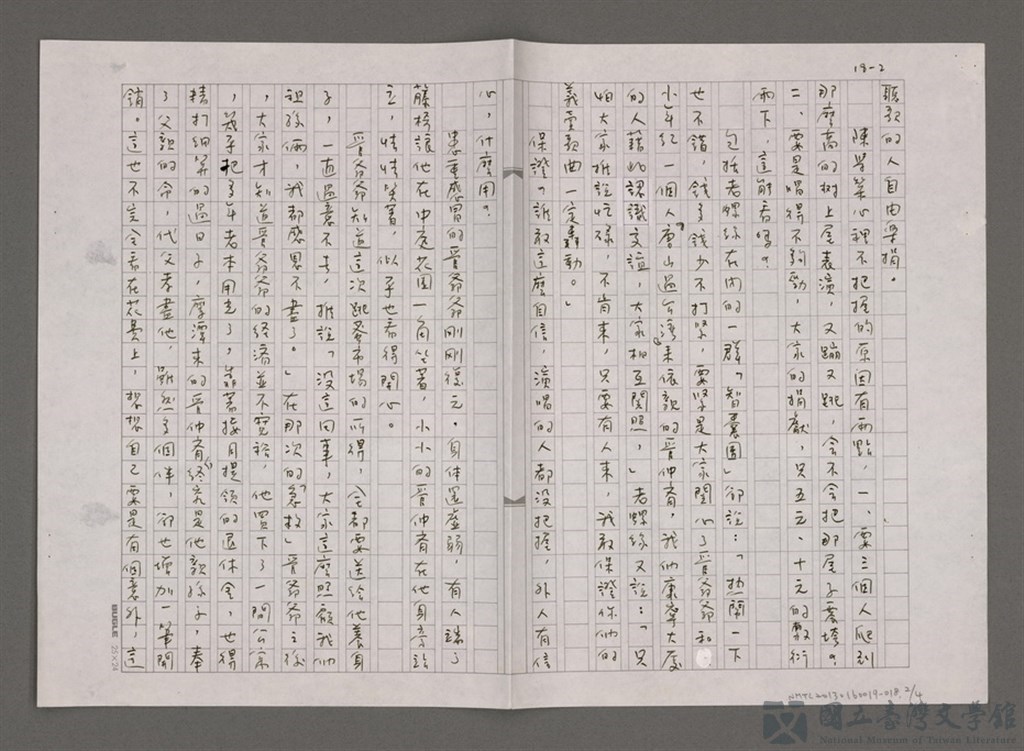 18-2
聽歌的人自由樂捐。
陳學榮心裡不把握的原因有兩點,一、要三個人爬到
那麼高的樹上尾表演,又蹦又跳,會不會把那尾子震垮?
二、要是唱得不夠勁,大家的捐獻,只五元、十元的敷衍
兩下,這能看嗎?
包括老螺絲在內的一群「智囊團」卻說:「熱鬧一下
也不錯,錢多錢少不打緊,要緊是大家關心了晉爺爺和
小年紀一個人『唐山過台灣』來依親的晉仲齊,我們康寧大廈
的人藉此認識交誼,大家相互關照,」老螺絲又說:「只
怕大家推說忙碌,不肯來,只要有人來,我敢保證你們的
義賣歌曲一定轟動。」
保證?誰敢這麼自信,演唱的人都沒把握,外人有信
心,什麼用?
患重感冒的晉爺爺剛剛復元。身體還虛弱,有人端了
藤椅讓他在中庭花園一角坐著,小小的晉仲齊在他身旁站
立,悄悄笑著,似乎也看得開心。
晉爺爺知道這次跳蚤市場的所得,全都要送給他養身
子,一直過意不去,推說「沒這回事,大家這麼照顧我們
祖孫倆,我都感恩不盡了。」在那次的「急救」晉爺爺之後
,大家才知道晉爺爺的經濟並不寬裕,他買下了一間公寓
,幾乎把多年老本用走了,靠著按月提領的退休金,也得
精打細算的過日子,摩潭來的晉仲齊,終究是他親孫子,奉
了父親的命,代父孝盡他,雖然多個伴,卻也增加一筆開
銷。這也不完全看在花費上,想想自己要是有個意外,這
BUBULE 25×24
NMTL20130160019-018 2/4
國立臺灣文學館
National Museum of Taiwan Literature